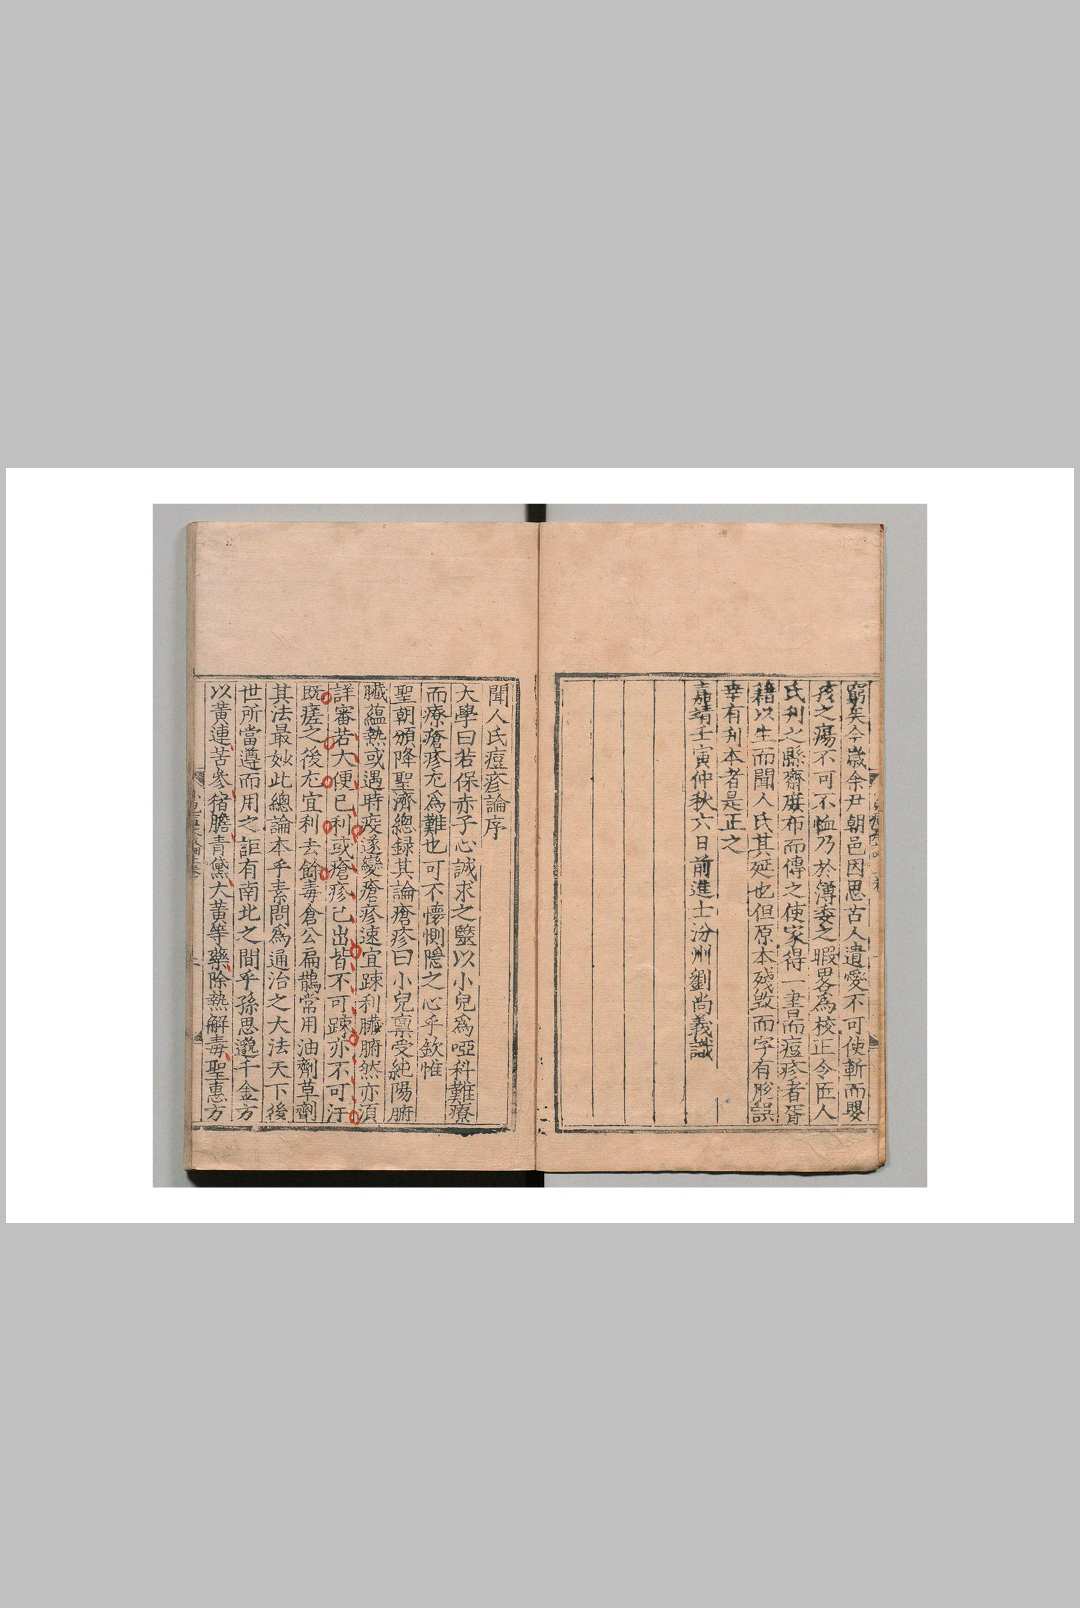 窮矣今歲余尹朝邑因思古人遺愛不可使斬而嬰
孩之瘍不可不恤乃於簿委之暇畧為校正令匠人
氏刋之縣齋廣布而傳之使家得一書而痘疹者胥
藉以生而聞人氏其延也但原本殘毀而字有胗誤
幸有刋本者是正之
嘉靖壬寅仲秋六日前進士汾州劉尚義識
聞人氏痘疹論序
大學曰若保赤子心誠求之毉以小兒爲啞科難療
而療瘡疹尤爲難也可不懷惻隱之心乎欽惟
聖朝頒降聖濟總録其論瘡疹曰小兒禀受純陽腑
臟蘊熱或遇時疫遂變瘡疹速宜踈利臟腑然亦湏
詳審若大便已利或瘡疹已出皆不可踈亦不可汗
既瘥之後尤宜利去餘毒倉公扁鵲常用油劑草劑
其法最妙此總論本乎素問爲通治之大法天下後
世所當遵而用之詎有南北之間乎孫思邈千金方
以黄連苦參猪膽青黛大黄等藥除熱解毒聖惠方